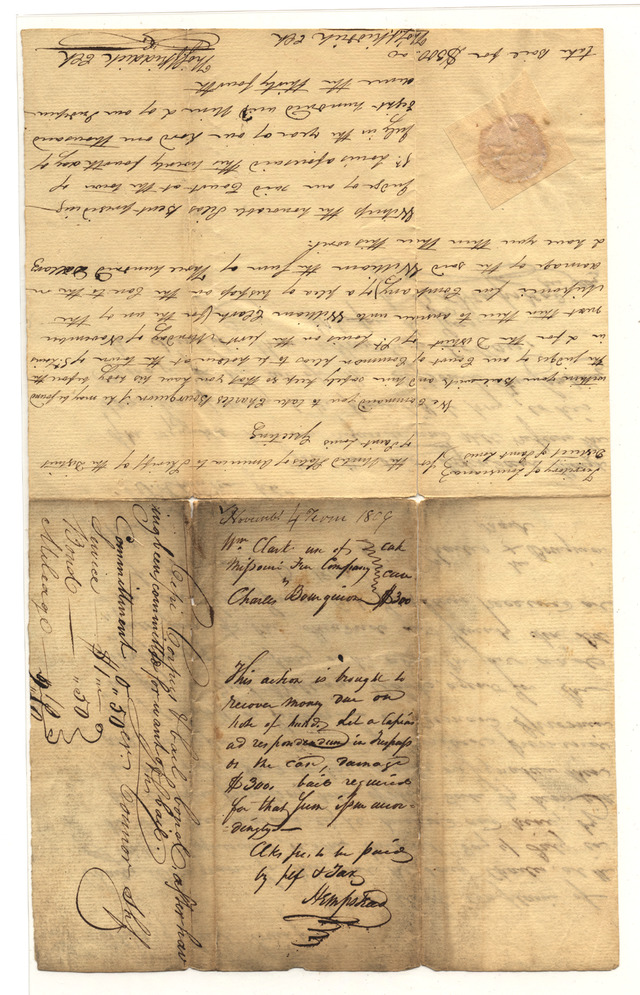 Territory of Louisiana
District of Saint Louis for
the United States of America to Sheriff of the District
of Saint Louis Greeting
We Command you to take Charles Bourguion if he may be found
within your Bailiwick and him safely keep so that you have his body before the
the Judges of our Court of Common pleas to be holden at the town of St Louis
in & for the District of St Louis on the first Monday of November
next then there to answer unto William Clark for the use of the
Missouri fur Company of a plea of trespass on the Case to the
damage of the said William the sum of Three hundred dollars
& have you then there this writ.
Witness the honorable Silas Bent presiding
Judge of our said Court at the town of
St Louis aforesaid the twenty fourth day of
July in the year of our Lord one thousand
eight hundred and Nine & of our Indepen-
dence the thirty fourth
Thos F Riddick Clk
take Bail for $300.00
Thos F Riddick Clk
November 4 Term 1809
Wm Clark use of
Missouri Fur Company
"
Charles Bourguion
case
$300
This action is brought to
recover money due on
note of hand. Let a Capias
ad respondendum in Trespass
on the case, damage
$300, bail required
for that sum issue accor-
dingly
Clks fee to be paid
by plf & Tax
Hempstead
Cepi Corpus & bail bond after hav
ing been committed for want of bail.
Commitment 0"50
Service $1"
Bond "50
Mileage
Connor Shf.